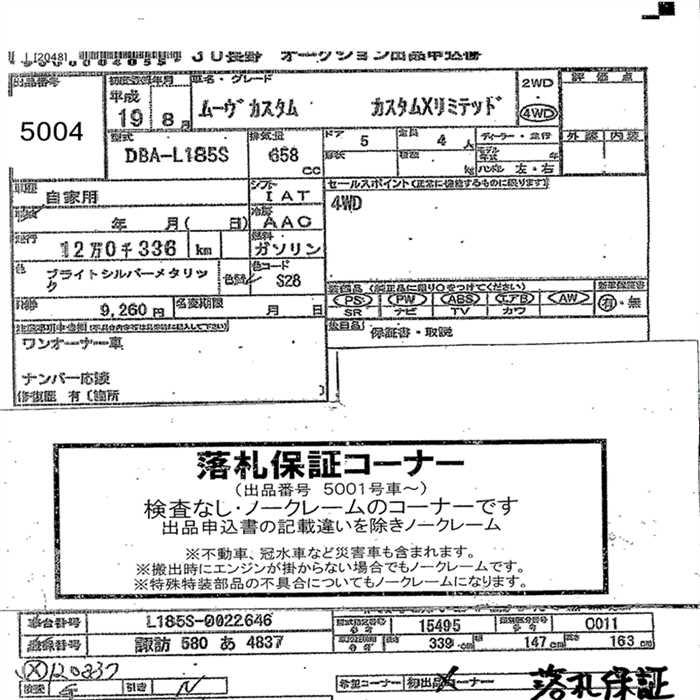 [2048]
JU長野 オークション出品申込書
出品番号 初度登録年月 車名・グレード 2WD 評価点
平成 ムーヴカスタム カスタムXリミテッド 4WD
5004 19 8月
型式 排気量 ドア 5 定員 4人 外装 内装
DBA-L185S 658 cc
kg ハンドル 左・右
車歴 自家用 シフト IAT セールスポイント(正常に機能するものに限ります)
年 月( 日) 冷房 AAC 4WD
走行 12万0千336 km 燃料 ガソリン
色 ブライトシルバーメタリック 色替 色コード S28
装備品(純正品に限り○をつけてください) 新車保証書
PS PW ABS エアB AW 有・無
SR ナビ TV カワ
9,260円 名変期限 月 日
保証書・取説
ワンオーナー車
ナンバー応談
修復歴 有(箇所 )
落札保証コーナー
(出品番号 5001号車~)
検査なし・ノークレームのコーナーです
出品申込書の記載違いを除きノークレーム
※不動車、冠水車など災害車も含まれます。
※搬出時にエンジンが掛からない場合でもノークレームです。
※特殊特装部品の不具合についてもノークレームになります。
車台番号 L185S-0022646 型式指定番号 15495 類別区分番号 0011
登録番号 諏訪 580 あ 4837 長さ 339cm 幅 147cm 高さ 163cm
希望コーナー 初出品コーナー 落札保証